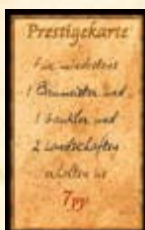 Prestigekarte
Für mindestens
1 Baumeister und
1 Gaukler und
2 Landschaften
erhalten sie
7pp